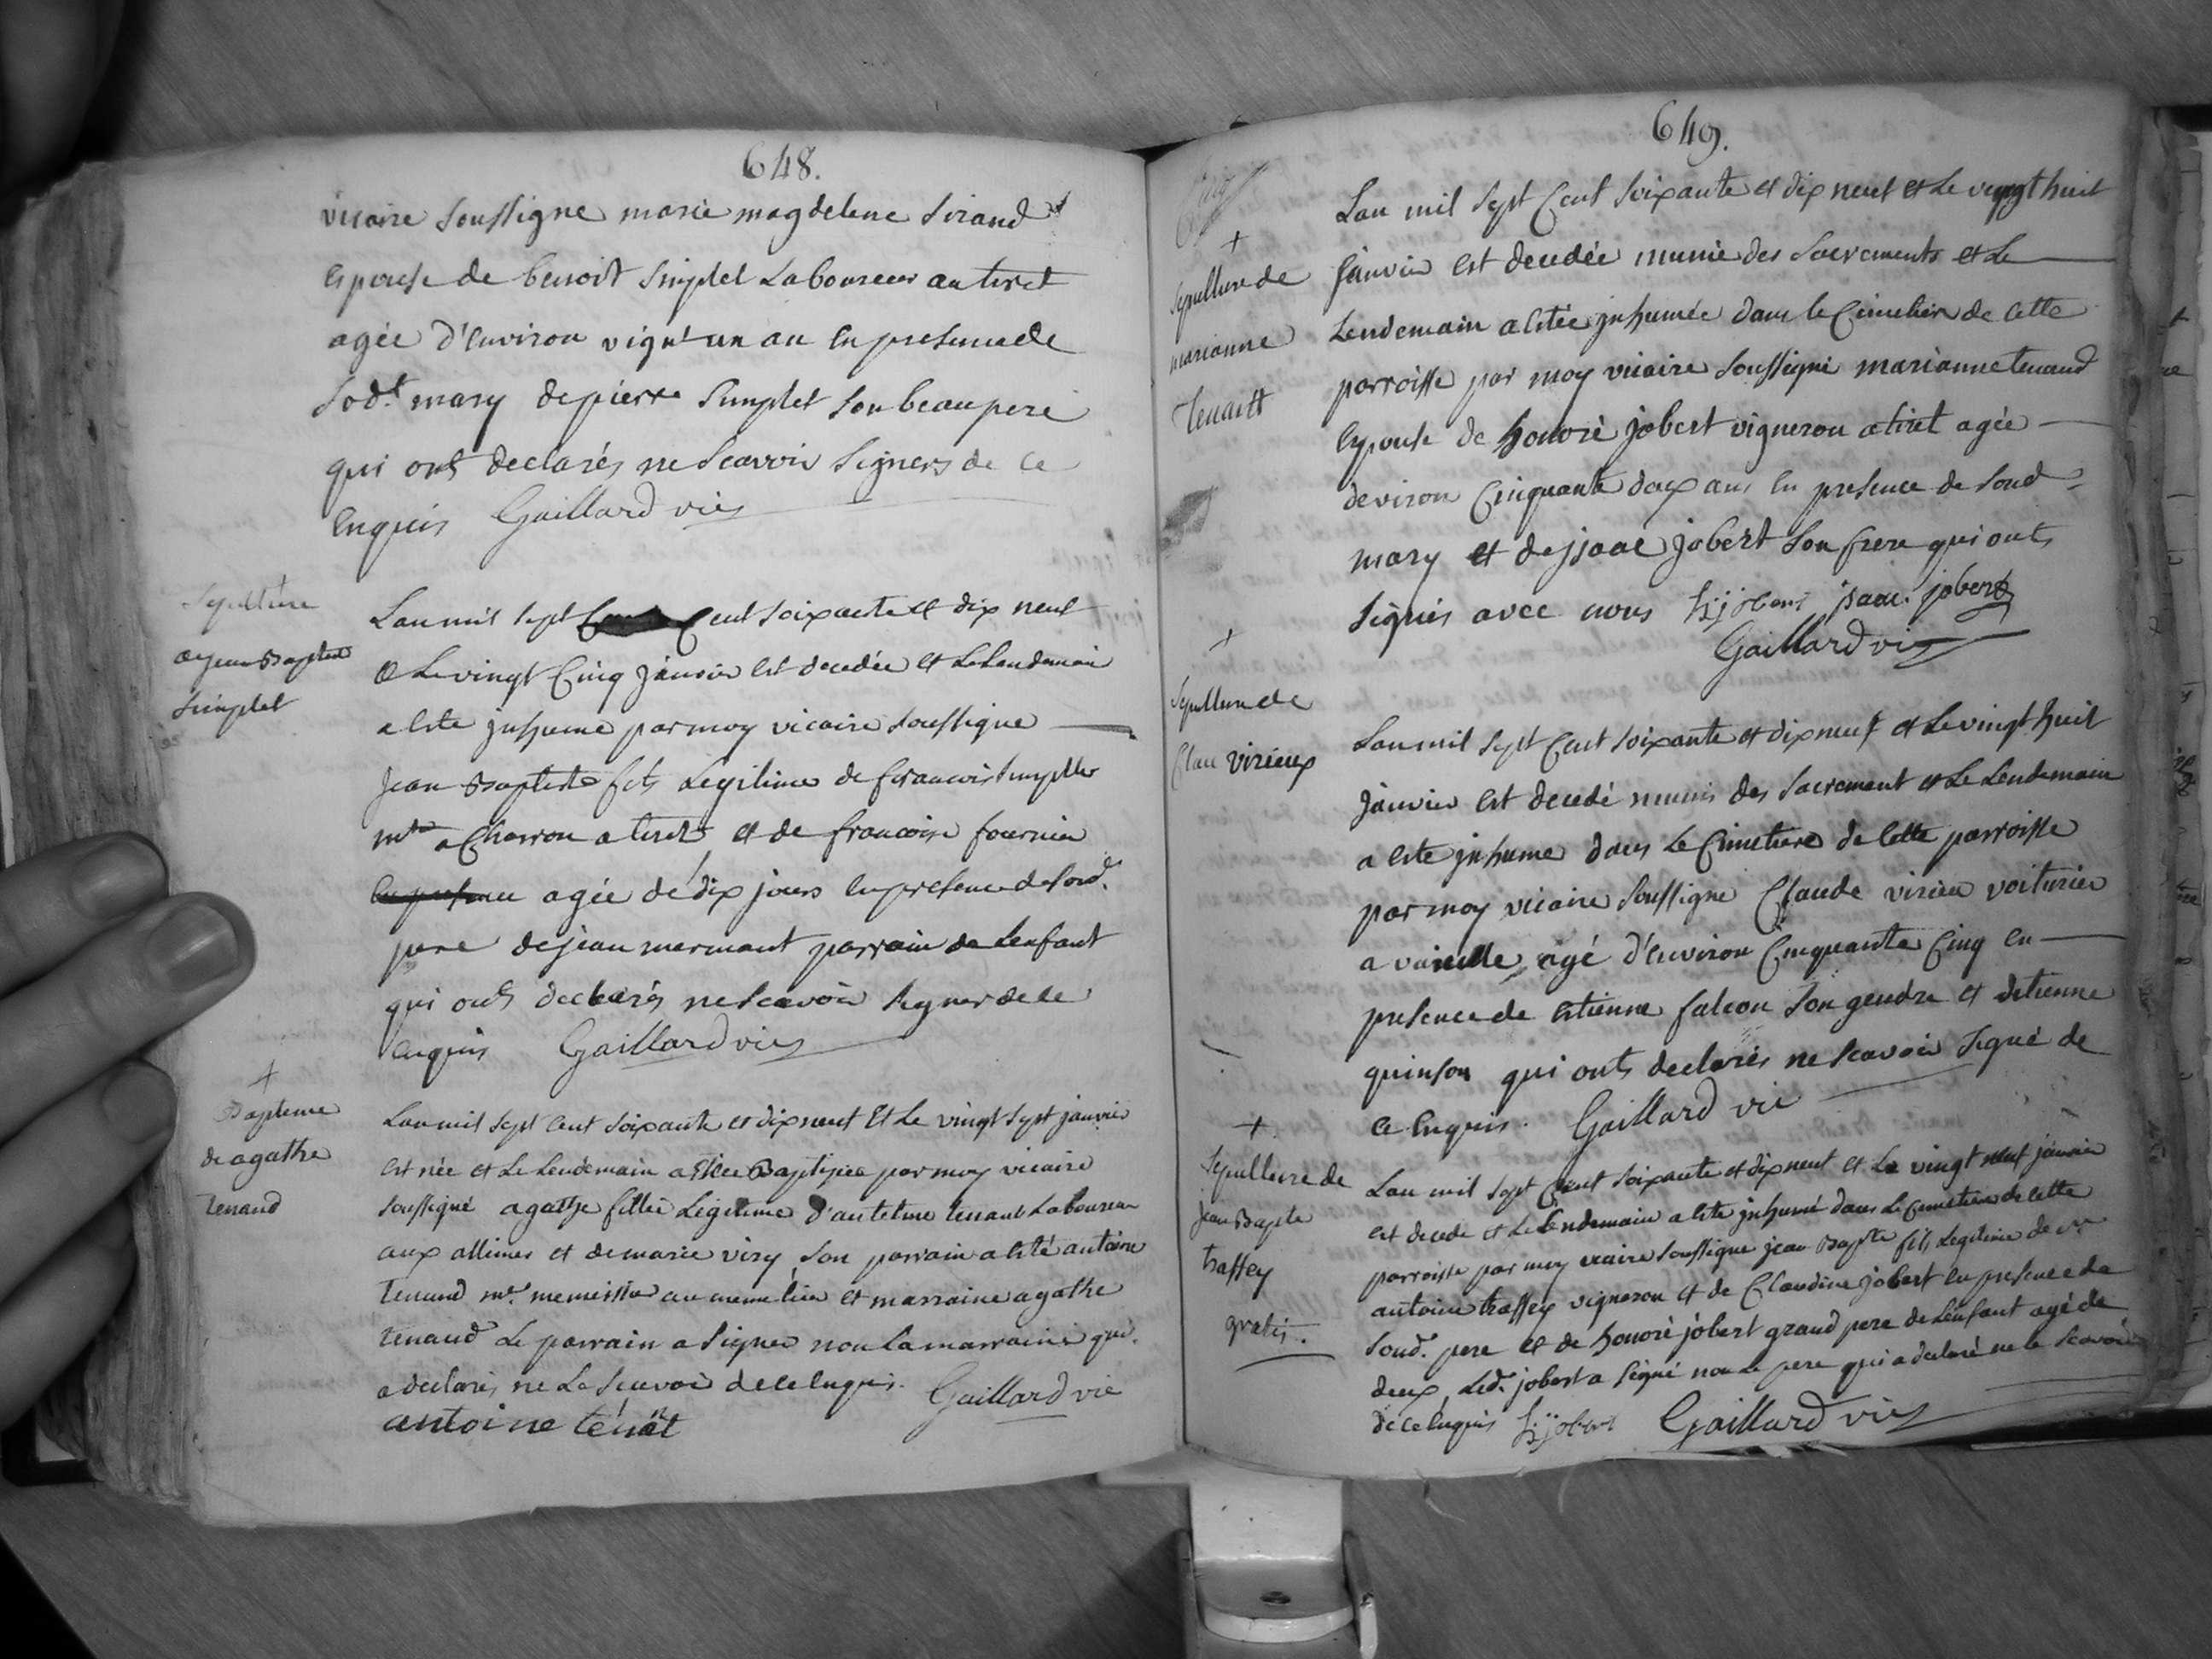 648.
vicaire soussigne marie magdelene sirand
epouse de benoit simplet Laboureur au tiret
agée d'environ vignt un an en presence de
sod.t mary de pierre Simplet son beau pere
qui onts declarés ne scavoir signers de ce
enquis Gaillard vic
Sepulture
de jean Baptiste
Simplet
Lan mil sept Cent soixante et dix neuf
& Le vingt Cinq janvier est decedée et Le Lendemain
a este inhume par moy vicaire soussigne
Jean Baptiste fils Legitime de francois simplet
m.tre Charron a tiret et de francoise fournier
agée de dix jours en presence de sond.
pere de jean mermant parrain de Lenfant
qui onts declarés ne scavoir signer de ce
enquis Gaillard vic
+
Bapteme
de agathe
tenand
Lan mil sept cent soixante et dix neuf Et Le vingt sept janvier
est née et Le Lendemain a Estée Baptisée par moy vicaire
soussigné agathe fillie Legitime d'antelme tenand Laboureur
aux allimes et de marie viry, son parrain a esté antoine
tenand m.e menuisier au meme lieu et marraine agathe
tenand Le parrain a signer non La marraine qui
a declarés ne Le scavoir de ce enquis. Gaillard vic
antoine tenat
649.
+
sepulture de
marianne
Tenand
Lan mil sept Cent soixante et dix neuf et Le vingt huit
janvier est decedée munie des sacrements et Le
Lendemain a estée inhumée dans le Cimetier de cette
parroisse par moy vicaire soussigné marianne tenand
epouse de honoré jobert vigneron a tiret agée
deviron Cinquante doux ans en presence de soud
mary et de jsaac jobert son frere qui onts
signés avec nous hjjobert jsaac jobert
Gaillard vic
+
sepulture de
Clau virieux
Lan mil sept Cent soixante et dix neuf et Le vingt huit
janvier est decedé munis des sacrement et Le Lendemain
a este inhume dans Le Cimetiere de cette parroisse
par moy vicaire soussigne Claude virieu voiturier
a vareille agé d'environ Cinquante Cinq en
presence de Etienne falcon son gendre et detienne
quinson qui onts declarés ne scavoir signé de
ce enquis. Gaillard vic
+
Sepulture de
jean Bapte
traffey
gratis.
Lan mil sept Cent soixante et dix neuf et Le vingt neuf janvier
est decede et Le Lendemain a este inhumé dans Le Cimetiere de cette
parroisse par moy vicaire soussigne jean Bapte fils Legitime de
antoine traffey vigneron et de Claudine jobert en presence de
soud. pere et de honoré jobert grand pere de Lenfant agé de
deux, Led. jobert a signé non Le pere qui a declaré ne le scavoir
de ce enquis hjjobert Gaillard vic